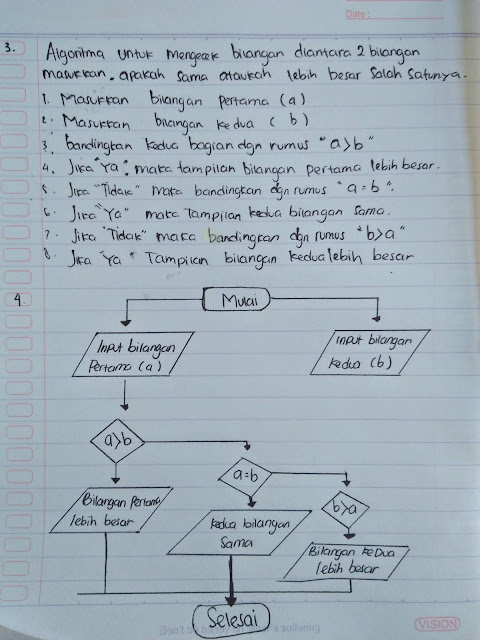 Date :
3. Algoritma untuk mengecek bilangan diantara 2 bilangan
masukkan. apakah sama ataukah lebih besar salah satunya.
1. Masukkan bilangan pertama (a)
2. Masukkan bilangan kedua (b)
3. bandingkan kedua bagian dgn rumus "a>b"
4. Jika "Ya", maka tampilan bilangan pertama lebih besar.
5. Jika "Tidak" maka bandingkan dgn rumus "a=b".
6. Jika "Ya" maka Tampilan kedua bilangan sama.
7. Jika "Tidak" maka bandingkan dgn rumus "b>a"
8. Jika "Ya" Tampilan bilangan kedua lebih besar
4. Mulai
Input bilangan
Pertama (a)
Input bilangan
kedua (b)
a>b
a=b
b>a
Bilangan Pertama
lebih besar
kedua bilangan
sama
Bilangan keDua
lebih besar
Selesai
VISION